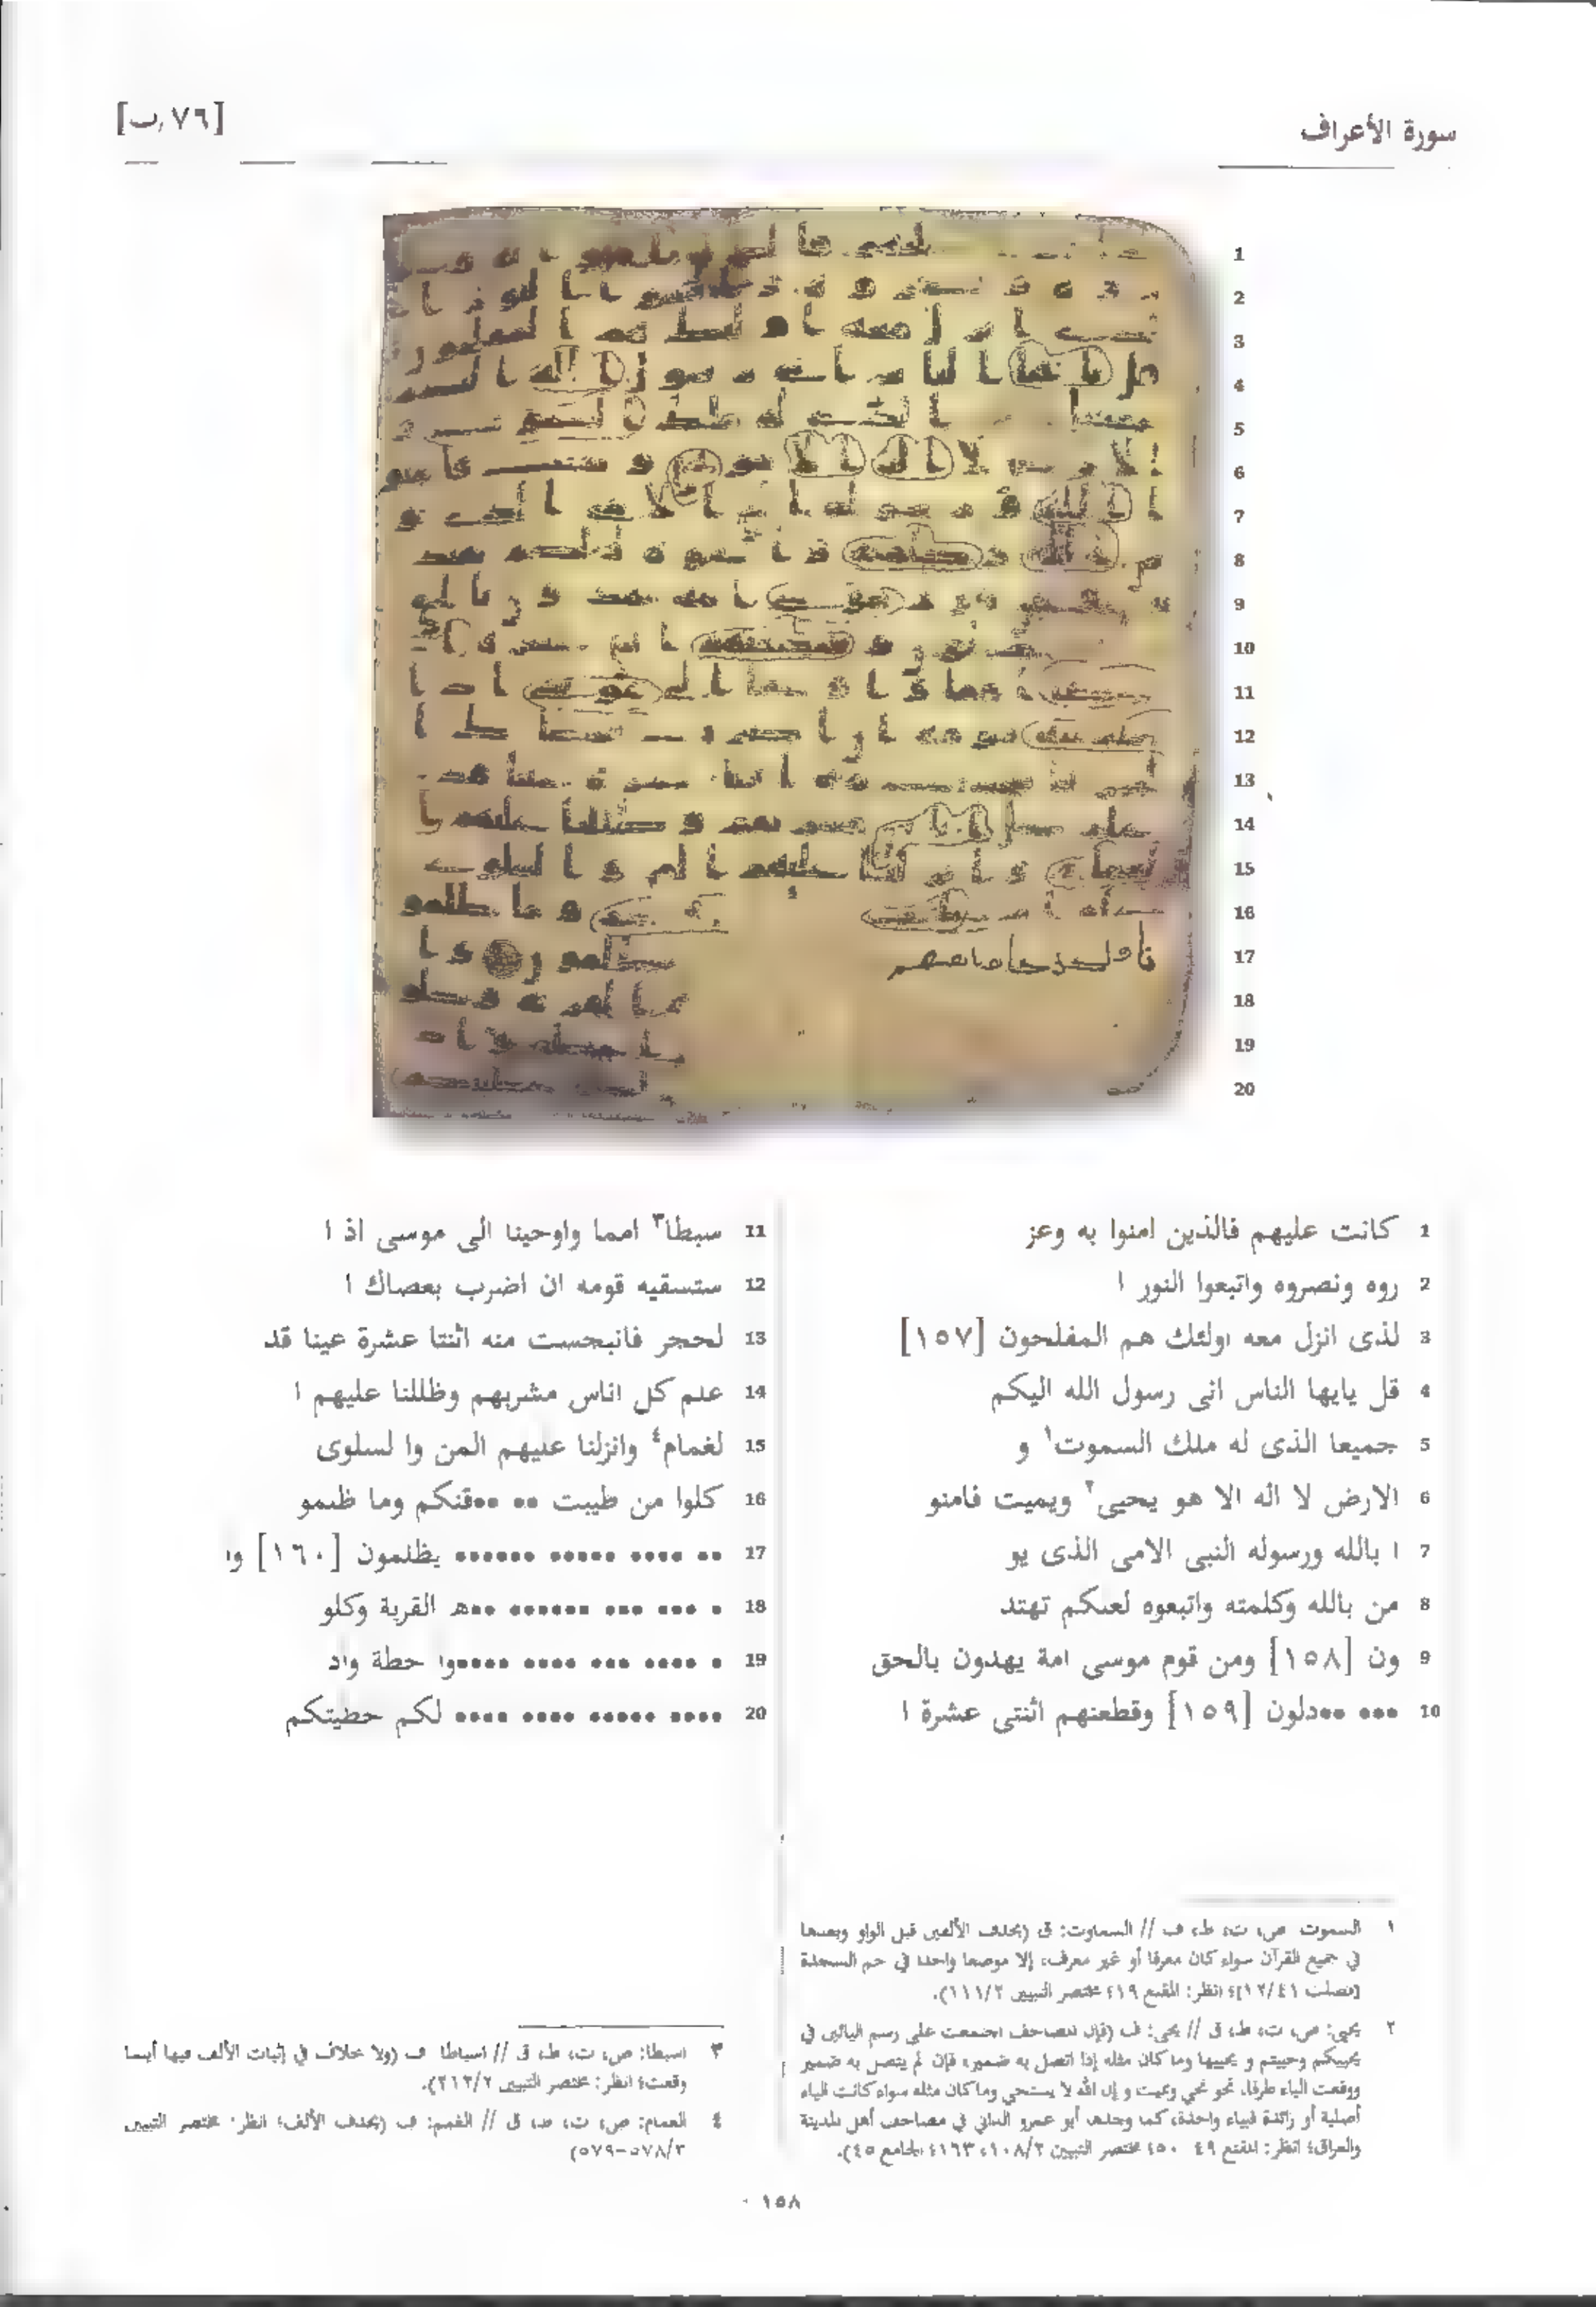 سورة الأعراف
[٧٦/ب]
1 كانت عليهم فالذين امنوا به وعز
2 روه ونصروه واتبعوا النور ا
3 لذى انزل معه اولئك هم المفلحون [١٥٧]
4 قل يايها الناس انى رسول الله اليكم
5 جميعا الذى له ملك السموت١ و
6 الارض لا اله الا هو يحيى٢ ويميت فامنو
7 ا بالله ورسوله النبى الامى الذى يو
8 من بالله وكلمته واتبعوه لعلكم تهتد
9 ون [١٥٨] ومن قوم موسى امة يهدون بالحق
10 ••• ••دلون [١٥٩] وقطعنهم اثنتى عشرة ا
11 سبطا٣ امما واوحينا الى موسى اذ ا
12 ستسقيه قومه ان اضرب بعصاك ا
13 لحجر فانبجست منه اثنتا عشرة عينا قد
14 علم كل اناس مشربهم وظللنا عليهم ا
15 لغمام٤ وانزلنا عليهم المن وا لسلوى
16 كلوا من طيبت •• ••قنكم وما ظلمو
17 •• •••• ••••• •••••• يظلمون [١٦٠] وا
18 • ••• ••• •••••• ••ه القرية وكلو
19 • •••• ••• •••• •••••وا حطة واد
20 •••• ••••• •••• •••• لكم خطيتكم
١ السموت ص، ت، ط، ف // السماوت: ق (بحذف الألفين قبل الواو وبعدها
في جميع القرآن سواء كان معرفا أو غير معرف، إلا موضعا واحدا في حم السجدة
[فصلت ١٢/٤١]؛ انظر: المقنع ١٩؛ مختصر التبيين ١١١/٢).
٢ يحيي: ص، ت، ط، ق // يحي: ف (فإن المصاحف اجتمعت على رسم اليائين في
يحييكم وحييتم و يحييها وما كان مثله إذا اتصل به ضمير، فإن لم يتصل به ضمير
ووقعت الياء طرفا، نحو نحي ويميت و إن الله لا يستحي وما كان مثله سواء كانت الياء
أصلية أو زائدة فبياء واحدة، كما وجدها أبو عمرو الداني في مصاحف أهل المدينة
والعراق؛ انظر: المقنع ٤٩-٥٠؛ مختصر التبيين ١٠٨/٢، ١٦٣؛ الجامع ٤٥).
٣ اسبطا: ص، ت، ط، ق // اسباطا ف (ولا خلاف في إثبات الألف فيها أينما
وقعت؛ انظر: مختصر التبيين ٢١٣/٢).
٤ الغمام: ص، ت، ط، ق // الغمم: ف (بحذف الألف؛ انظر: مختصر التبيين
٥٧٨/٣-٥٧٩)
١٥٨